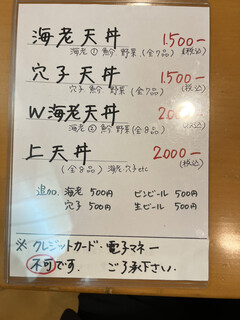 海老天丼 1.500-
海老① 魚介 野菜 (全7品) (税込)
穴子天丼 1.500-
穴子 魚介 野菜 (全7品) (税込)
W海老天丼 2.000-
海老② 魚介 野菜 (全8品) (税込)
上天丼 2.000-
(全8品) 海老.穴子etc (税込)
追加 海老 500円 ビンビール 500円
穴子 500円 生ビール 500円
※ クレジットカード・電子マネー
不可です. ご了承下さい.